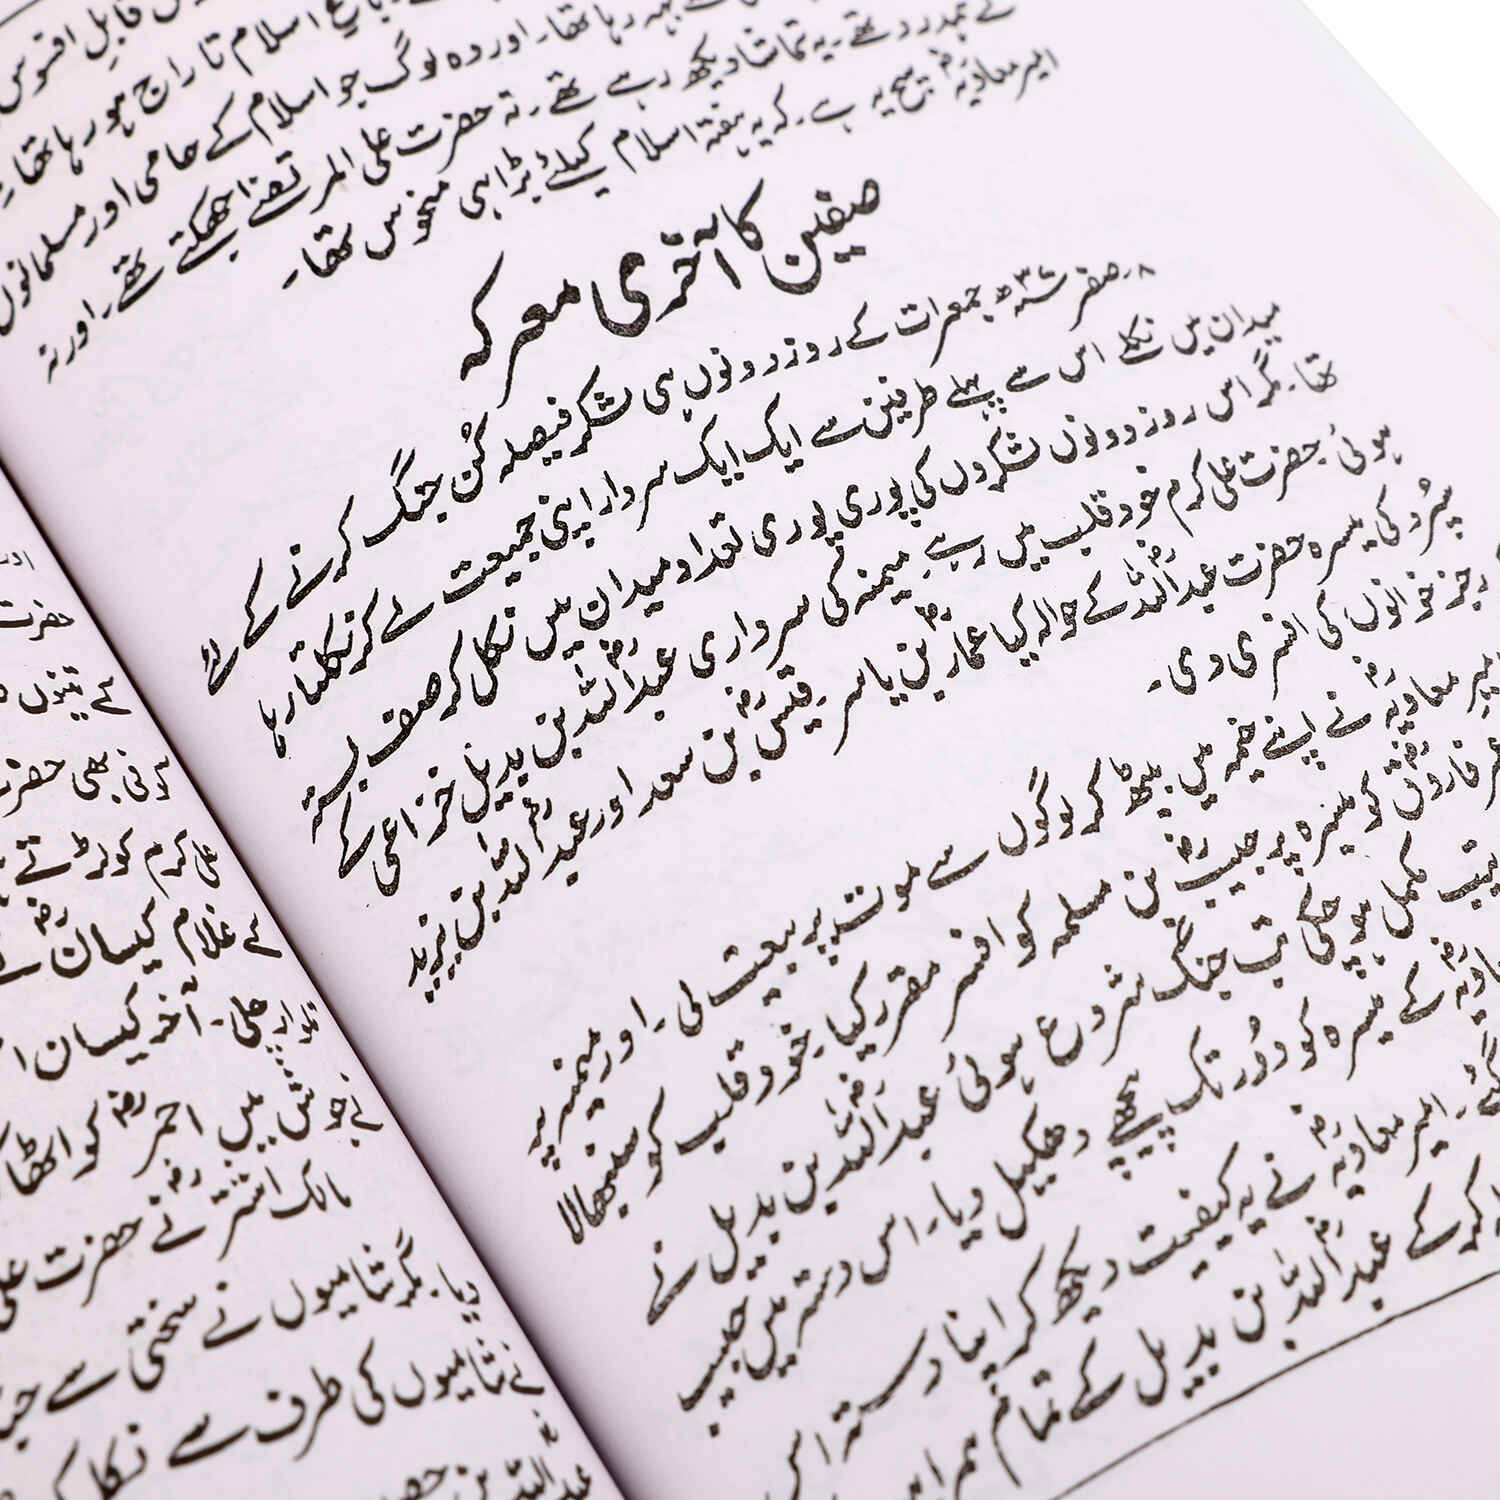 قابل افسوس
باغ اسلام تاراج ہو رہا تھا۔
بہہ رہا تھا۔ اور وہ لوگ جو اسلام کے حامی اور مسلمانوں
کے ہمدرد تھے۔ یہ تماشا دیکھ رہے تھے۔ نہ حضرت علی المرتضےٰ جھکتے تھے۔ اور نہ
امیر معاویہؓ سچ یہ ہے۔ کہ یہ ہفتہ اسلام کیلئے بڑا ہی منحوس تھا۔
صفین کا آخری معرکہ
۸۔ صفر ۳۷ھ جمعرات کے روز دونوں ہی لشکر فیصلہ کُن جنگ کرنے کے لئے
میدان میں نکلے اس سے پہلے طرفین سے ایک ایک سردار اپنی جمیعت لے کر نکلتا رہا
تھا۔ مگر اس روز دونوں لشکروں کی پوری پوری تعداد میدان میں نکل کر صف بستہ
ہوئی حضرت علی کرم خود قلب میں رہے۔ میمنہ کی سرداری عبداللہؓ بن بدیل خزاعی کے
سپُرد کی میسرہ حضرت عبداللہؓ کے حوالہ کیا عمارؓ بن یاسر۔ قیسؓ بن سعد اور عبداللہؓ بن یزید
رجز خوانوں کی افسری دی۔
امیر معاویہؓ نے اپنے خیمہ میں بیٹھ کر لوگوں سے موت پر بیعت لی۔ اور میمنہ پہ
فاروقؓ کو میسرہ پر حبیبؓ بن مسلمہ کو افسر مقرر کیا۔ خود قلب کو سنبھالا
مکمل ہو چکی تب جنگ شروع ہوئی عبداللہؓ بن بدیل نے
کے میسرہ کو دُور تک پیچھے دھکیل دیا۔ اس دستہ میں حبیب
گئے۔ امیر معاویہؓ نے یہ کیفیت دیکھ کر اپنا دستہ اس
کر کے عبداللہؓ بن بدیل کے تمام ہمرا
حضرت
سے تینوں
نے بھی حضرت
علی کرم کو لڑتے
کے غلام کیسانؓ
تلوار چلی۔ آخر کیسان
نے جوش میں احمرؓ کو اٹھا
مالک اشترؓ نے حضرت علی
دیا۔ مگر شامیوں نے سختی سے
نے شامیوں کی طرف سے نکل
عبداللہ بن